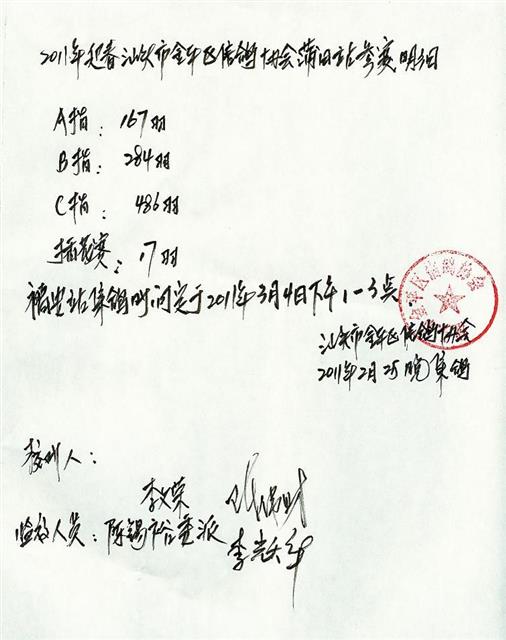 2011年迎春汕头市金平区信鸽协会莆田站参赛明细
A指：167羽
B指：284羽
C指：486羽
插花赛：17羽
福鼎站集鸽时间定于2011年3月4日下午1-3点
金平区信鸽协会
汕头市金平区信鸽协会
2011年2月25晚集鸽
裁判人：
李文荣
监放人员：陈锡裕 李岳年